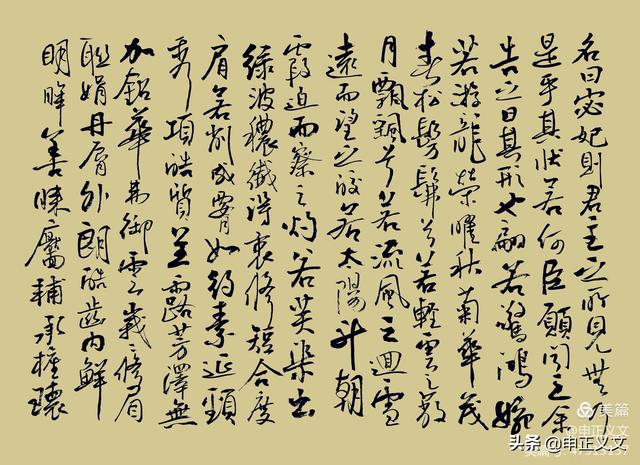 名曰宓妃則君王之所見無乃
是乎其狀若何臣願聞之余
告之曰其形也翩若驚鴻婉
若游龍榮曜秋菊華茂
春松髣髴兮若輕雲之蔽
月飄颻兮若流風之迴雪
遠而望之皎若太陽升朝
霞迫而察之灼若芙渠出
緑波穠纖得衷修短合度
肩若削成腰如約素延頸
秀項皓質呈露芳澤無
加鉛華弗御雲峩〻修眉
聯娟丹脣外朗皓齒内鮮
明眸善睞靨輔承權瓌
美篇
头条 @申正义文